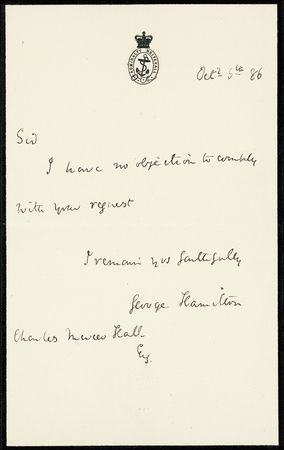 ADMIRALTY WHITEHALL
Octr 6th 86
Sir
I have no objection to comply
with your request
I remain yrs faithfully
George Hamilton
Charles Mercer Hall
Esq.